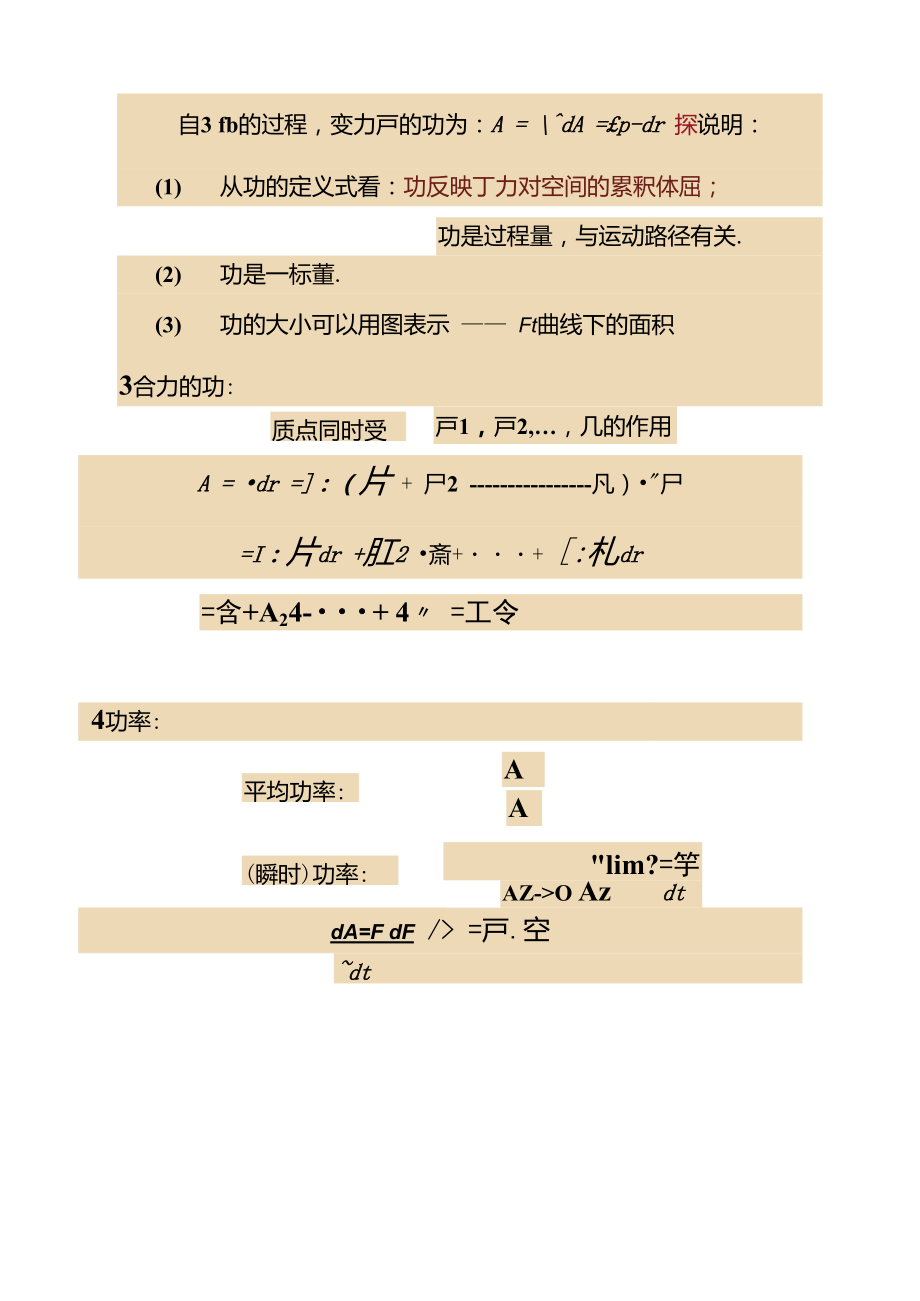 自3 fb的过程，变力戸的功为：A = \^dA =£p-dr 探说明：
(1) 从功的定义式看：功反映丁力对空间的累积体屈；
功是过程量，与运动路径有关.
(2) 功是一标董.
(3) 功的大小可以用图表示 —— Ft曲线下的面积
3合力的功：
质点同时受 戸1，戸2,…，几的作用
A = •dr =]：(片 + 尸2 ----------------凡）•"尸
=I：片dr +肛2 •斎+・・・+ [:札dr
=含+A₂4-・・・+ 4〃 =工令
4功率：
平均功率：
A
A
(瞬时)功率：
"lim?=竽
AZ->O Az dt
dA=F dF /> =戸. 空
~dt